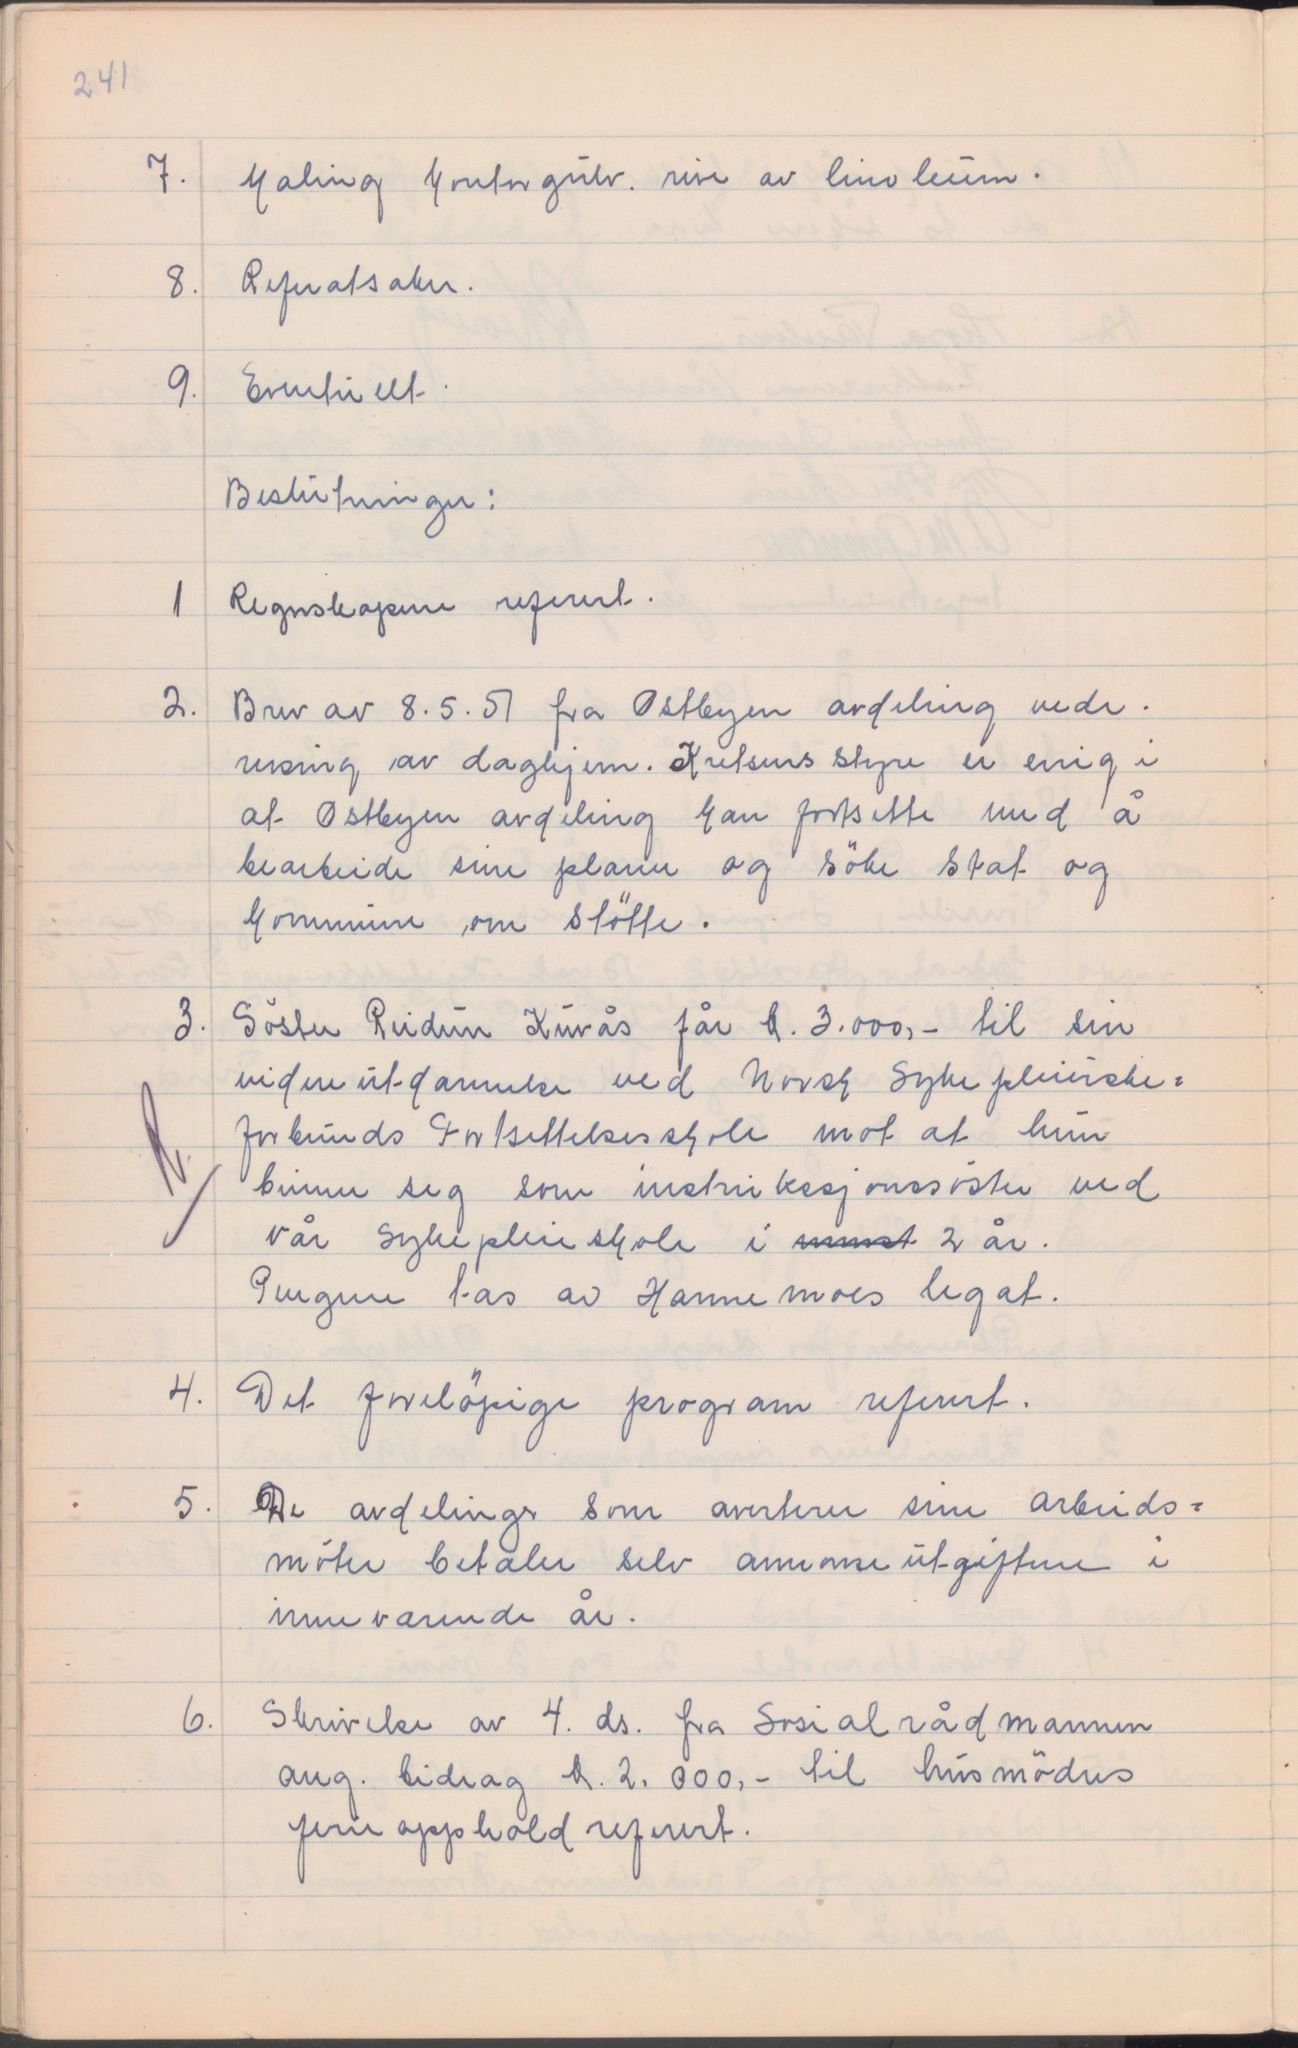 241
7. Maling kontorgulv. rive av linoleum.
8. Referatsaker.
9. Eventuelt.
Beslutninger:
1 Regnskapene referert.
2. Brev av 8.5.51 fra Østbyen avdeling vedr.
reising av daghjem. Kretsens styre er enig i
at Østbyen avdeling kan fortsette med å
bearbeide sine planer og söke stat og
kommune om stötte.
3. Söster Reidun Kurås får kr. 3.000,- til sin
videreutdannelse ved Norsk Sykepleierske=
forbunds Fortsettelsesskole mot at hun
binner seg som instruksjonssöster ved
vår sykepleieskole i minst 2 år.
Pengene tas av Hannemoes legat.
4. Det forelöpige program referert.
5. De avdelinger som averterer sine arbeids=
möter betaler selv annonseutgiftene i
inneværende år.
6. Skrivelse av 4. ds. fra Sosialrådmannen
ang. bidrag kr. 2.000,- til husmödres
ferieopphold referert.